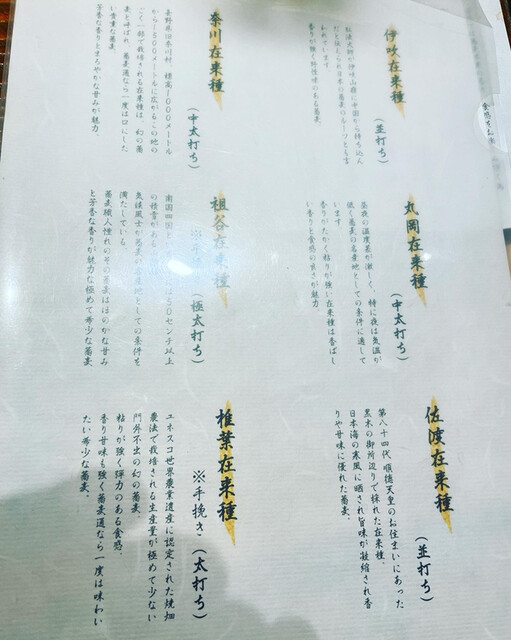 伊吹在来種
(並打ち)
弘法大師が伊吹山麓に中国から持ち込ん
だと伝えられ日本の蕎麦のルーツとも言
われています
香りが強く野性味のある蕎麦、
奈川在来種
(中太打ち)
長野県旧奈川村、標高1000メートル
から1500メートルに広がるこの地の
ごく一部で栽培される在来種は、幻の蕎
麦と呼ばれ、蕎麦通なら一度は口にした
い貴重な蕎麦、
芳香な香りとまろやかな甘みが魅力
丸岡在来種
(中太打ち)
昼夜の温度差が激しく、特に夜は気温が
低く蕎麦の名産地としての条件に適して
います
香りがたかく粘りが強い在来種は香ばし
い香りと食感の良さが魅力
祖谷在来種
(極太打ち)
南国四国と
50センチ以上
の積雪が
気候風土が蕎麦の名産地としての条件を
満たしている
蕎麦職人憧れのその蕎麦はほのかな甘み
と芳香な香りが魅力な極めて希少な蕎麦
佐渡在来種
(並打ち)
第八十四代 順徳天皇のお住まいにあった
黒木の御所辺りで採れた在来種、
日本海の寒風に晒され旨味が凝縮され香
りや甘味に優れた蕎麦、
椎葉在来種
※手挽き(太打ち)
ユネスコ世界農業遺産に認定された焼畑
農法で栽培される生産量が極めて少ない
門外不出の幻の蕎麦、
粘りが強く弾力のある食感、
香り甘味も強く蕎麦通なら一度は味わい
たい希少な蕎麦、